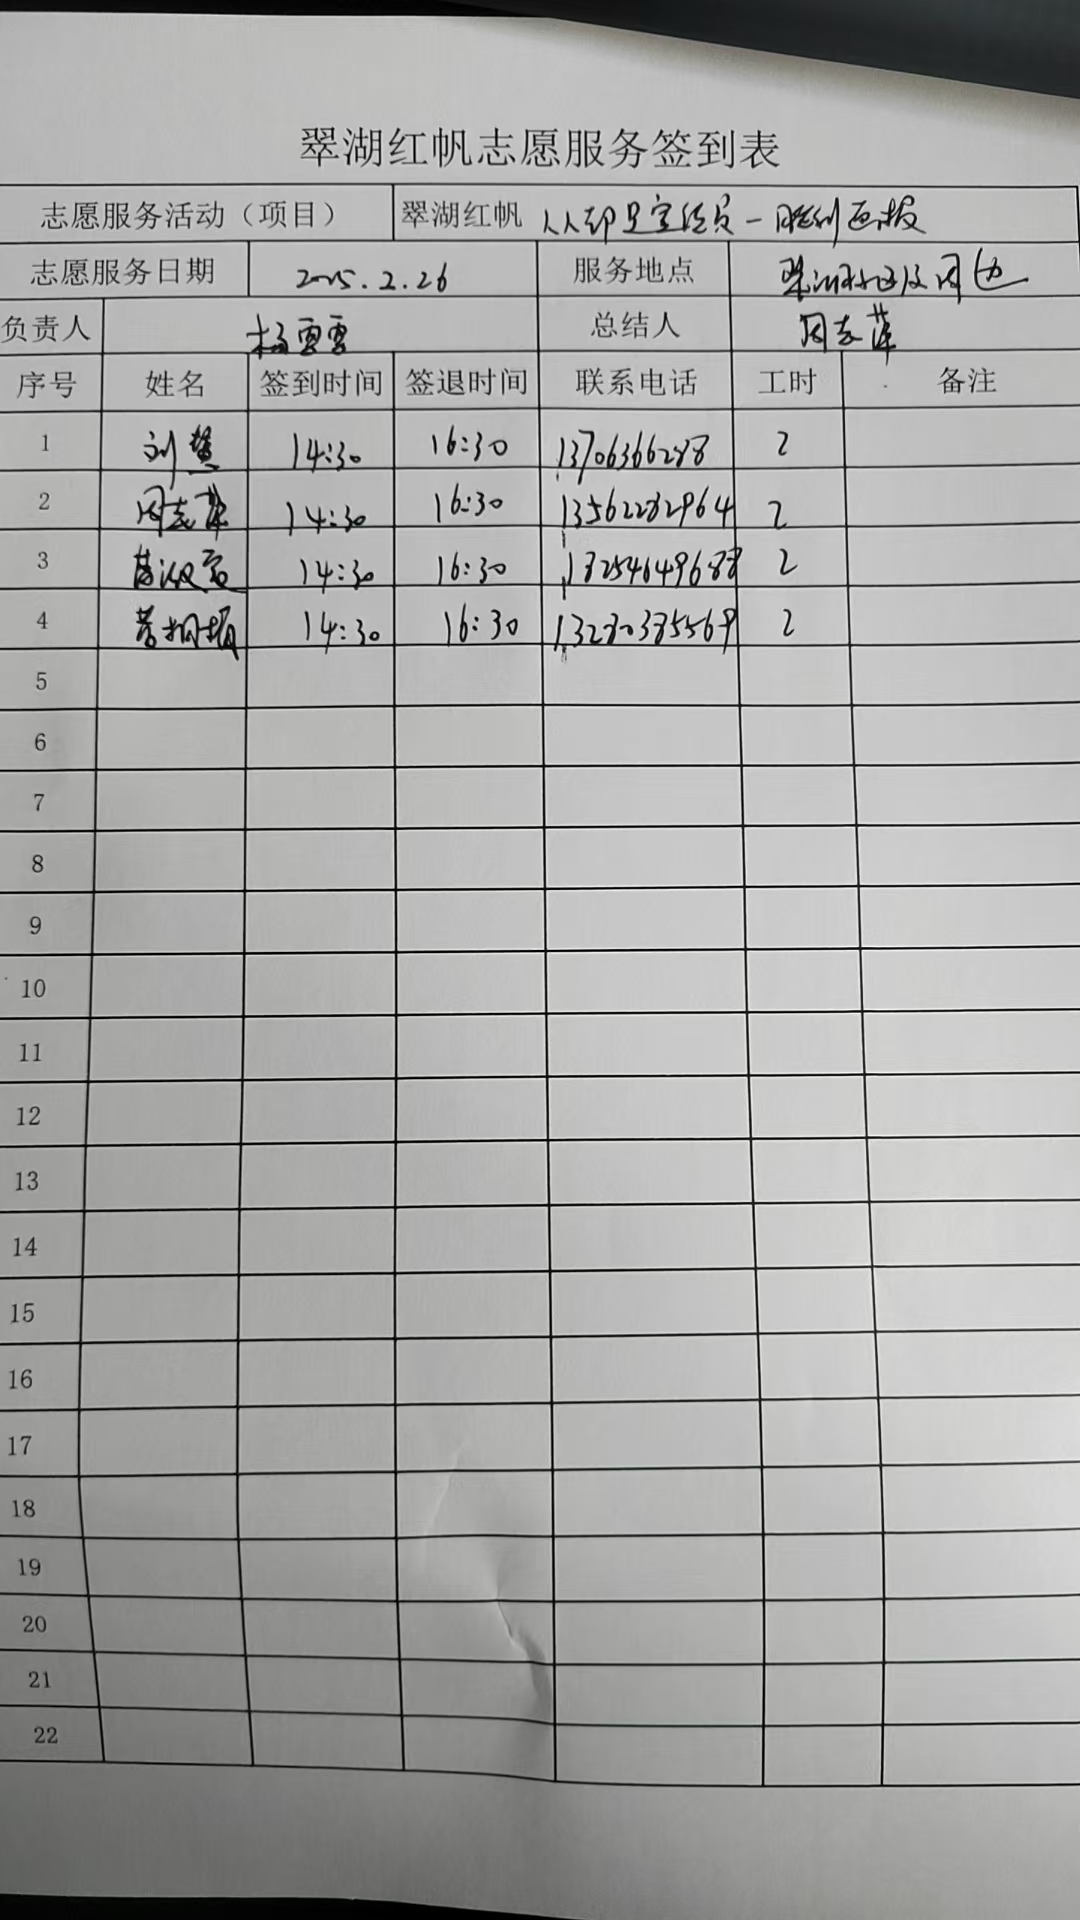 翠湖红帆志愿服务签到表
志愿服务活动（项目） 翠湖红帆 人人都是宣传员一
志愿服务日期 2025.2.26 服务地点 翠湖社区及周边
负责人 杨雪雪 总结人 周志萍
序号 姓名 签到时间 签退时间 联系电话 工时 备注
1 刘慧 14:30 16:30 13706366288 2
2 周志萍 14:30 16:30 13562282964 2
3 14:30 16:30 2
4 14:30 16:30 13280385569 2
5
6
7
8
9
10
11
12
13
14
15
16
17
18
19
20
21
22